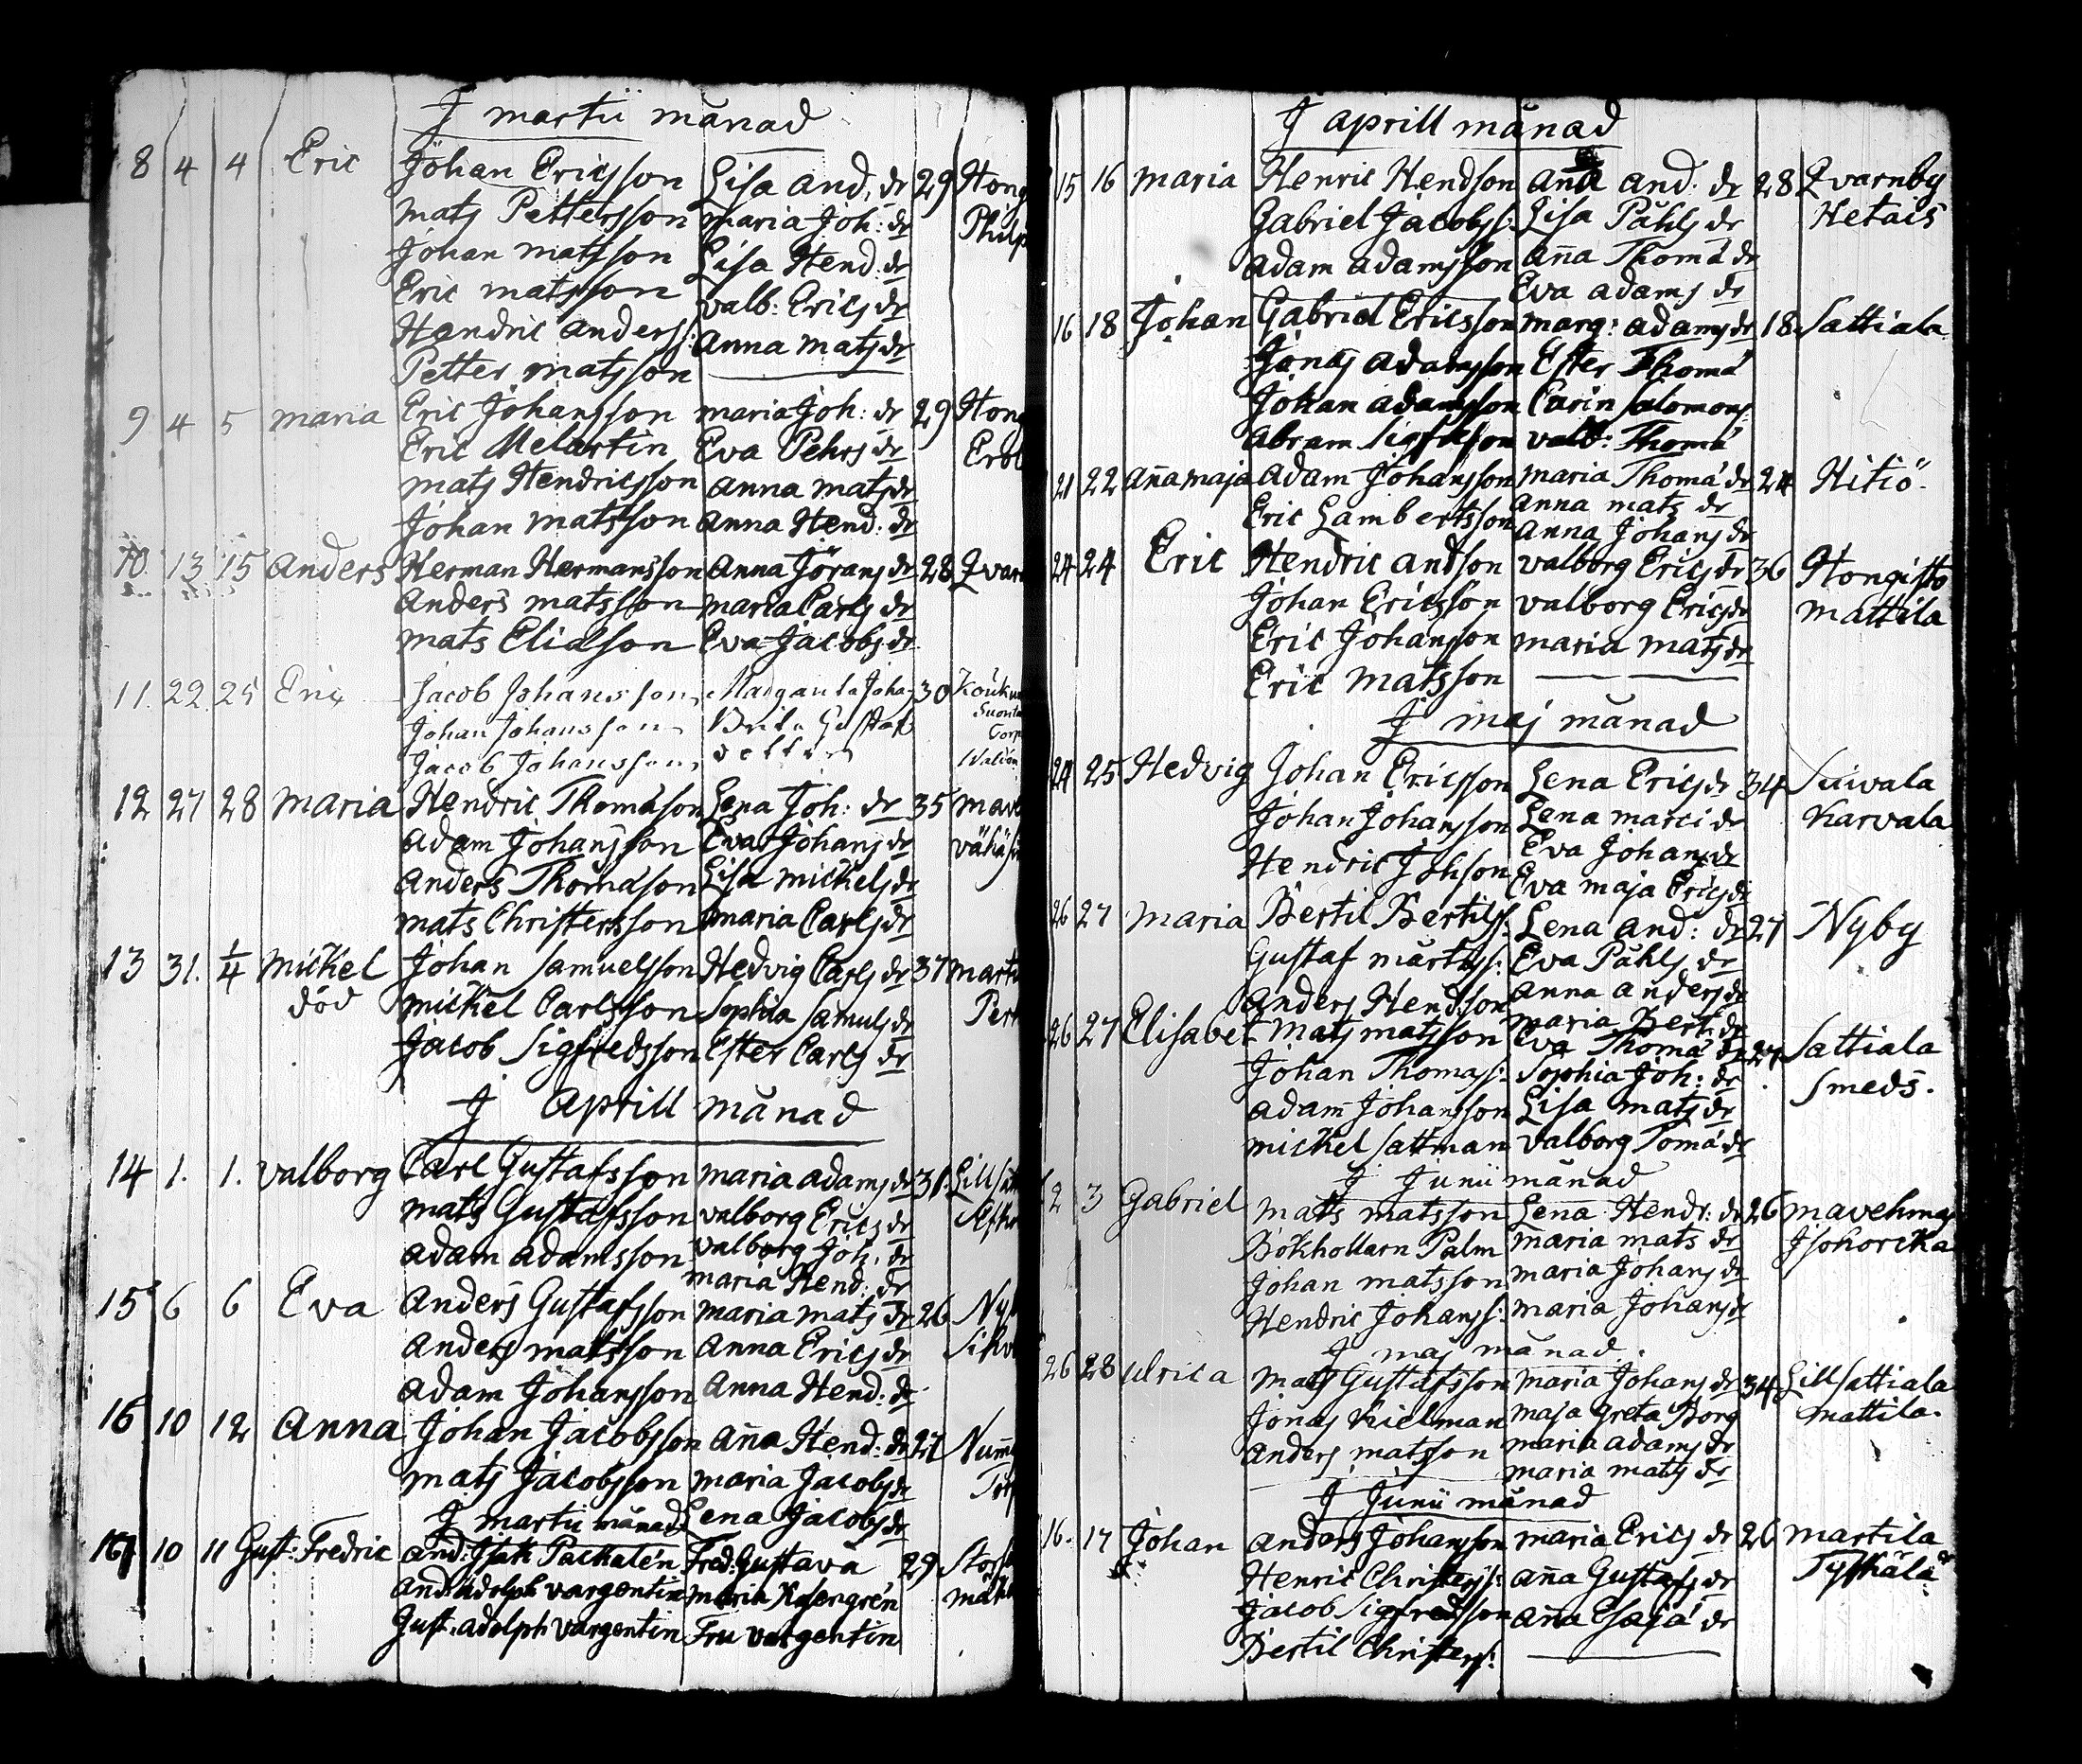 J martii månad
8 4 4 Eric Johan Ericsson Lisa And. dr 29 Hong
Mats Pettersson Maria Joh: dr Philp
Johan Matsson Lisa Hend: dr
Eric Matsson Valb: Erics dr
Hendric Anders: Anna Mats dr
Petter Matsson
9 4 5 Maria Eric Johansson Maria Joh: dr 29 Hong
Eric Melartin Eva Pehrs dr
Mats Hendricsson Anna Mats dr
Johan Matsson Anna Hend: dr
10 13 15 Anders Herman Hermansson Anna Jörans dr 28 Qvar
Anders Matsson Maria Carls dr
Mats Eliasson Eva Jacobs dr
11. 22. 25 Eric Jacob Johansson Margareta Joha 30
Johan Johansson Brita Gustafs
Jacob Johansson dotter
12 27 28 Maria Hendric Thomasson Lena Joh: dr 35 Mave
Adam Johansson Eva Johans dr vähä
Anders Thomasson Lisa Mickels dr
Mats Christersson Maria Carls dr
13 31. 1/4 Mickel Johan Samuelsson Hedvig Carls dr 37 Marti
död Mickel Carlsson Sophia Samuls dr Per
Jacob Sigfredsson Ester Carls dr
J Aprill månad
14 1. 1. Valborg Carl Gustafsson Maria Adams dr 31. Lill
Mats Gustafsson Valborg Erics dr
Adam Adamsson Valborg Joh. dr
Maria Hend: dr
15 6 6 Eva Anders Gustafsson Maria Mats dr 26 Ny
Anders Matsson Anna Erics dr
Adam Johansson Anna Hend: dr
16 10 12 Anna Johan Jacobsson Aña Hend: dr 27 Num
Mats Jacobsson Maria Jacobs dr
J martii månad Lena Jacobs dr
10 11 Gust: Fredric And: Isak Packalén Fred: Gustava 29
And: Adolph Vargentin Maria Rosengrén
Gust. Adolph Vargentin Fru Vargentin
J aprill månad
15 16 Maria Henric Hendson Ana And. dr 28 Qvarnby
Gabriel Jacobss: Lisa Påhls dr Hetais
Adam Adamsson Aña Thoma dr
Eva Adams dr
16 18 Johan Gabriel Ericsson Marg: Adams dr 18 Sattiala
Jonas Adamsson Ester Thoma
Johan Adamsson Carin Salomons:
Abram Sigfrsson Valb: Thoma
21 22 Aña Maja Adam Johansson Maria Thoma dr 24 Hitiö
Eric Lambertsson Anna Mats dr
Anna Johans dr
24 24 Eric Hendric Andson Valborg Erics dr 36 Hongisto
Johan Ericsson Valborg Erics dr Mattila
Eric Johansson Maria Mats dr
Eric Matsson
J maj månad
24 25 Hedvig Johan Ericsson Lena Erics dr 34 Suivala
Johan Johansson Lena Marci dr Karvala
Hendric Johson Eva Johans dr
Eva Maja Erics dr
26 27 Maria Bertil Bertilss: Lena And: dr 27 Nyby
Gustaf Mårtss: Eva Påhls dr
Anders Hendsson Anna Anders dr
Maria Bert: dr
26 27 Elisabet Mats Matsson Eva Thoma dr 27 Sattiala
Johan Thomass: Sophia Joh: dr Smeds.
Adam Johansson Lisa Mats dr
Mickel Sattman Valborg Toma dr
J Junii månad
2 3 Gabriel Mats Matsson Lena Hendr: dr 26 Mavehma
Bokhollarn Palm Maria Mats dr Isohorcka
Johan Matsson Maria Johans dr
Hendric Johanss: Maria Johans dr
J maj månad.
26 28 Ulrica Mats Gustafsson Maria Johans dr 34 Lill Sattiala
Jonas Kielman Maja Greta Borg Mattila.
Anders Matsson Maria Adams dr
Maria Mats dr
J Junii månad
16. 17 Johan Anders Johansson Maria Erics dr 26 Martila
Henric Christerss: Aña Gustafs dr Tyskälä
Jacob Sigfredsson Aña Esaja dr
Bertil Christerss: